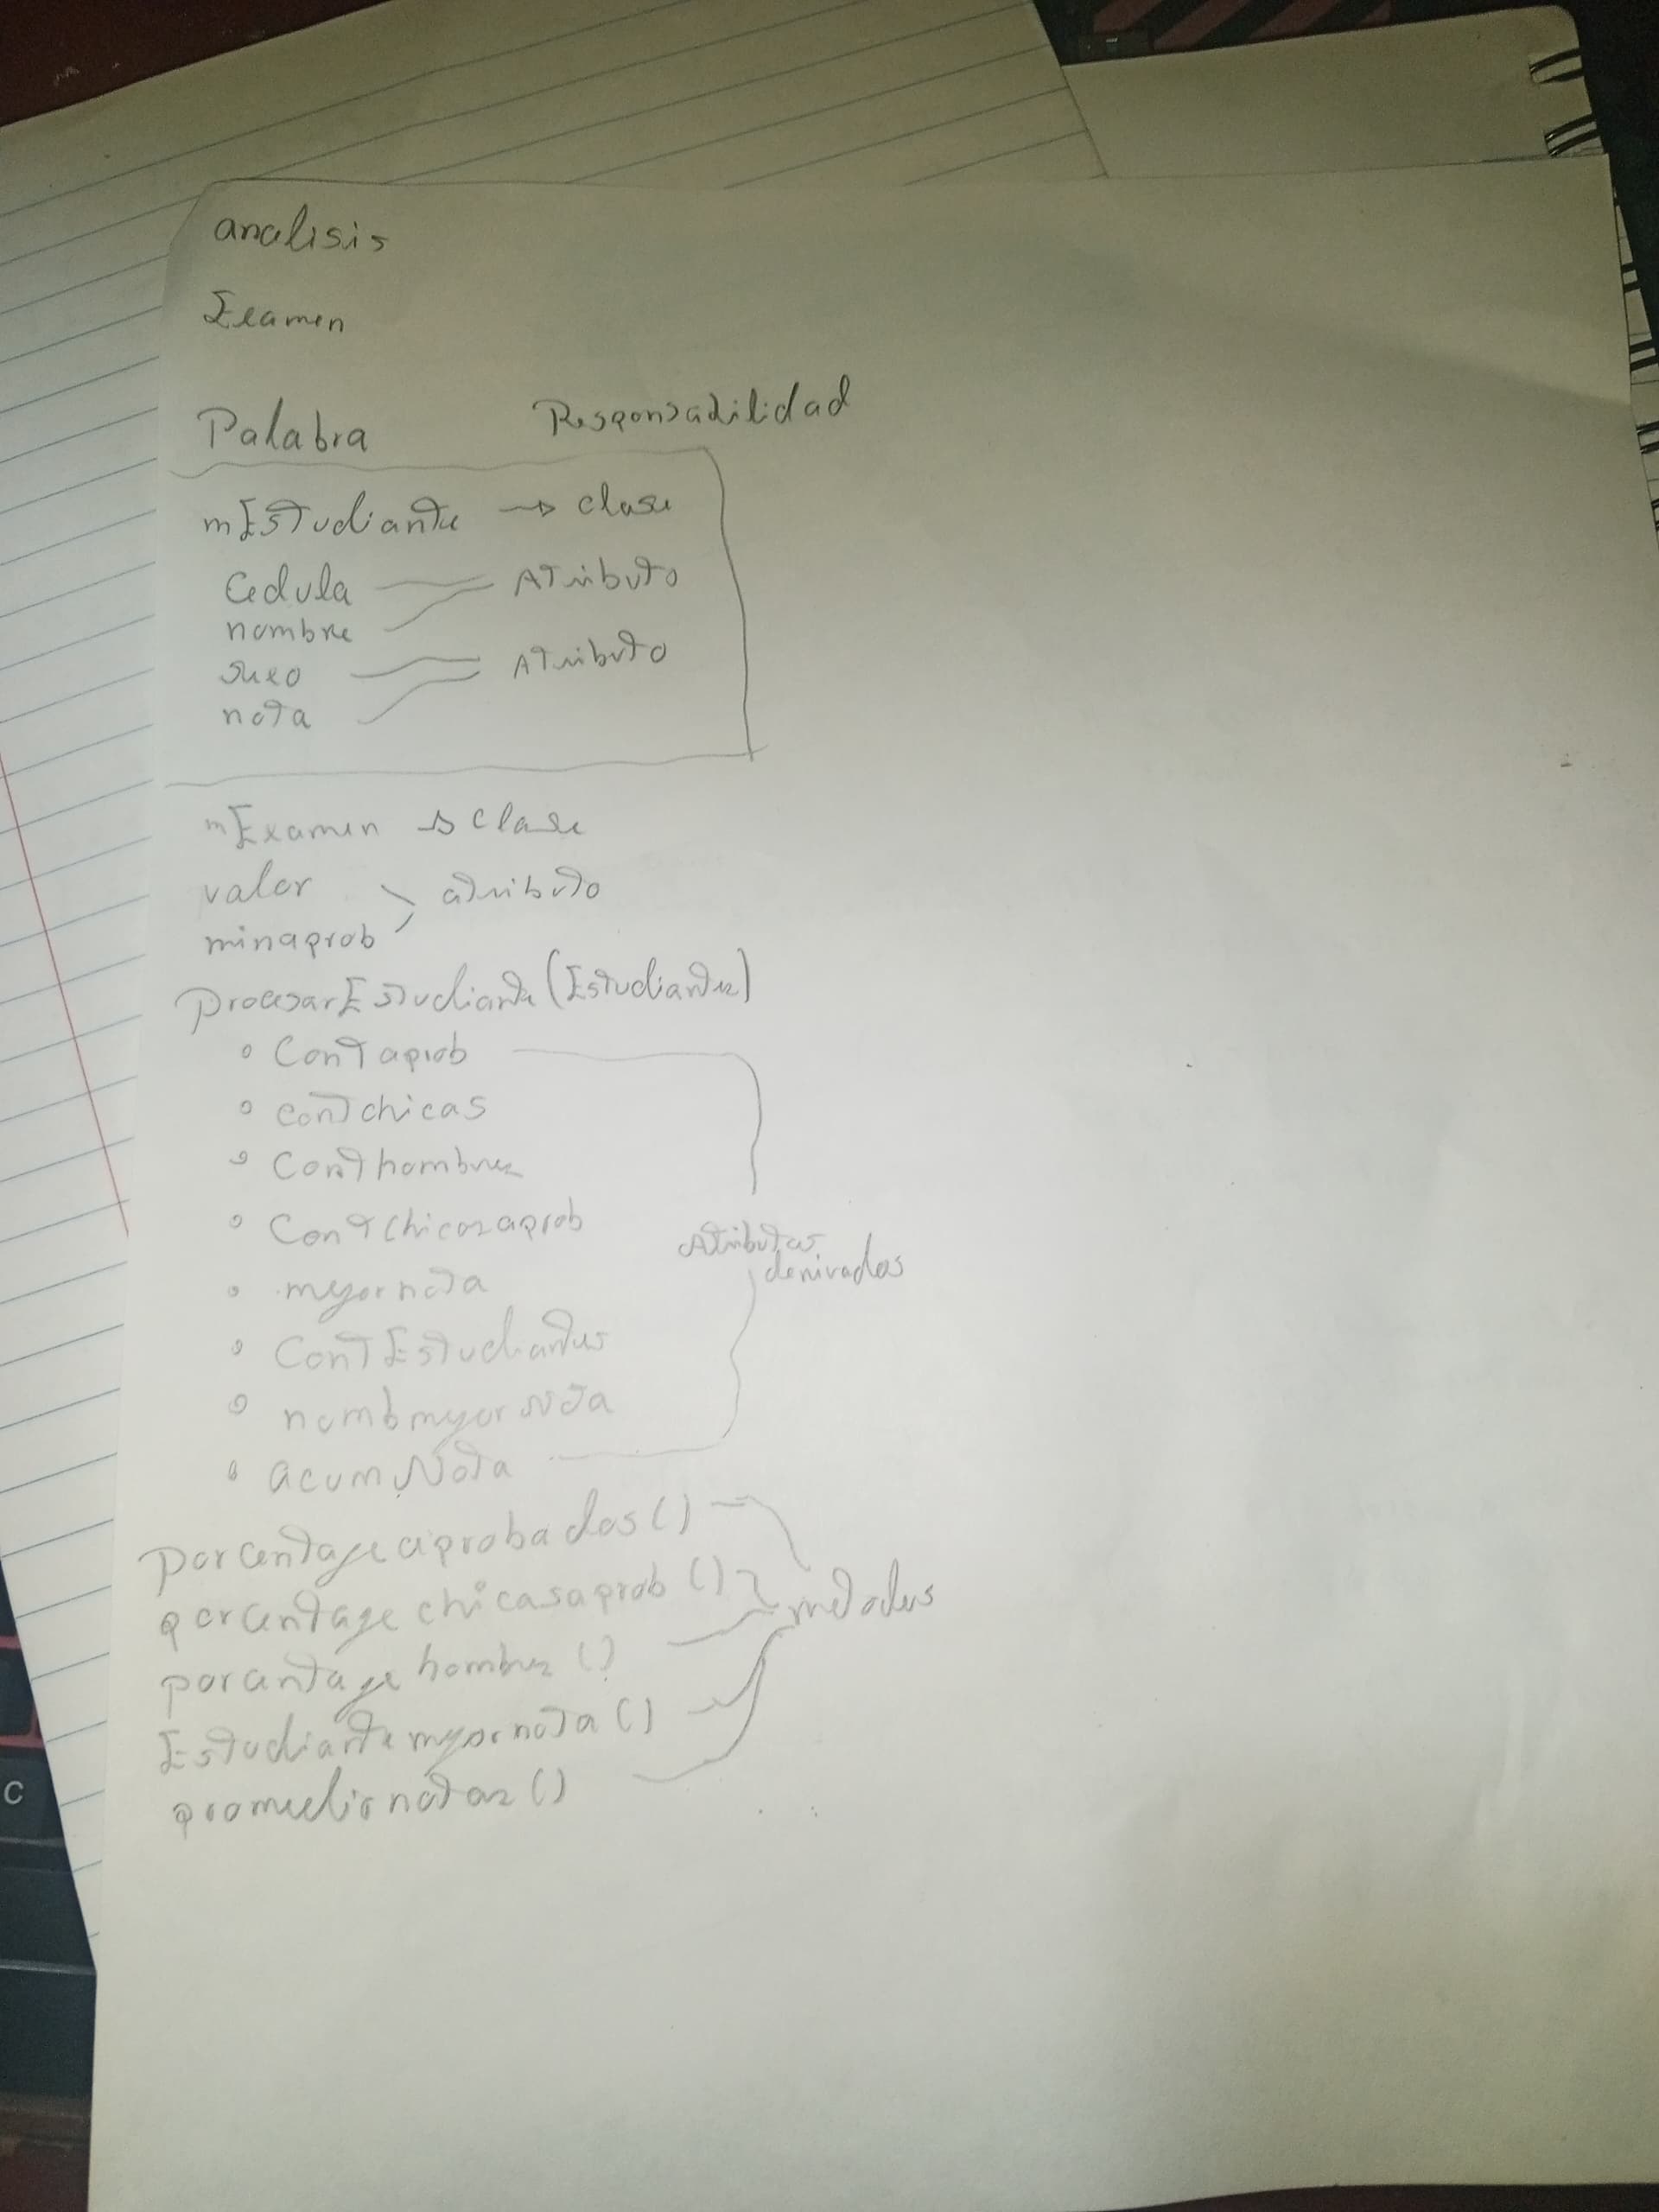 analisis
Examen
Palabra Responsabilidad
mEstudiante → clase
Cedula Atributo
nombre
sexo Atributo
nota
mExamen → clase
valor atributo
minaprob
procesarEstudiante (Estudiantes)
◦ Contaprob
◦ contchicas
◦ Conthombres
◦ Contchicasaprob
Atributos
derivados
◦ mayornota
◦ ContEstudiantes
◦ nombmayorNota
◦ acumNota
porcentajeaprobados ()
porcentaje chicasaprob () metodos
porcentaje hombres ()
Estudiante mayornota ()
promedio notas ()
C